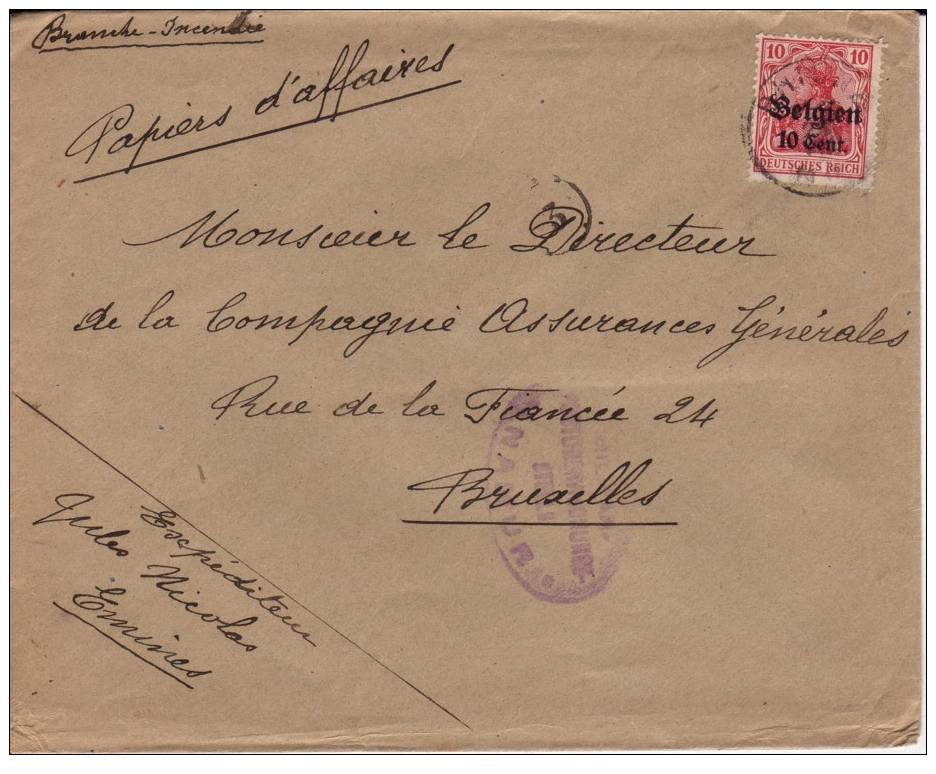 Branche-Incendie
Papiers d'affaires
10 10
Belgien
10 Cent.
DEUTSCHES REICH
Monsieur le Directeur
de la Compagnie Assurances Générales
Rue de la Fiancée 24
Bruxelles
NAMUR
Expéditeur
Jules Nicolas
Emines